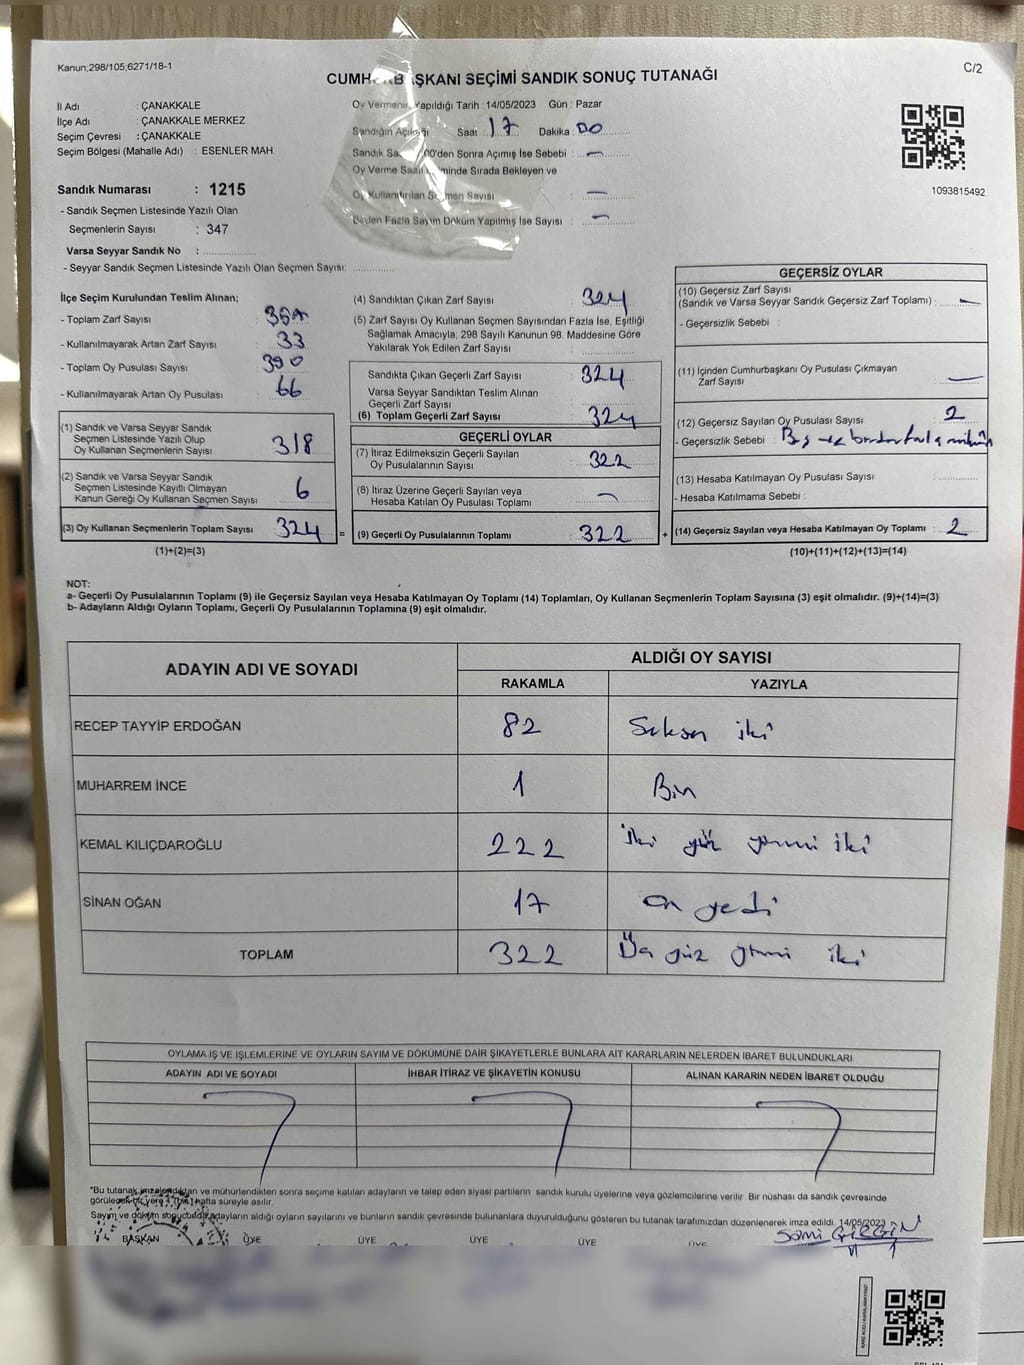 Kanun;298/105;6271/18-1
C/2
CUMH BAŞKANI SEÇİMİ SANDIK SONUÇ TUTANAĞI
İl Adı : ÇANAKKALE
İlçe Adı : ÇANAKKALE MERKEZ
Seçim Çevresi : ÇANAKKALE
Seçim Bölgesi (Mahalle Adı) : ESENLER MAH.
Oy Vermenin Yapıldığı Tarih : 14/05/2023 Gün : Pazar
Sandığın Açıldığı Saat : 17 Dakika : 00
Sandık Sa 00'den Sonra Açımış İse Sebebi : —
Oy Verme Saati minde Sırada Bekleyen ve
Oy Kullandırılan Seçmen Sayısı : —
Birden Fazla Sayım Döküm Yapılmış İse Sayısı : —
1093815492
Sandık Numarası : 1215
- Sandık Seçmen Listesinde Yazılı Olan
Seçmenlerin Sayısı : 347
Varsa Seyyar Sandık No :
- Seyyar Sandık Seçmen Listesinde Yazılı Olan Seçmen Sayısı:
İlçe Seçim Kurulundan Teslim Alınan;
- Toplam Zarf Sayısı
- Kullanılmayarak Artan Zarf Sayısı 33
- Toplam Oy Pusulası Sayısı 390
- Kullanılmayarak Artan Oy Pusulası 66
(1) Sandık ve Varsa Seyyar Sandık
Seçmen Listesinde Yazılı Olup
Oy Kullanan Seçmenlerin Sayısı 318
(2) Sandık ve Varsa Seyyar Sandık
Seçmen Listesinde Kayıtlı Olmayan
Kanun Gereği Oy Kullanan Seçmen Sayısı 6
(3) Oy Kullanan Seçmenlerin Toplam Sayısı 324 =
(1)+(2)=(3)
(4) Sandıktan Çıkan Zarf Sayısı 324
(5) Zarf Sayısı Oy Kullanan Seçmen Sayısından Fazla İse, Eşitliği
Sağlamak Amacıyla; 298 Sayılı Kanunun 98. Maddesine Göre
Yakılarak Yok Edilen Zarf Sayısı
Sandıkta Çıkan Geçerli Zarf Sayısı 324
Varsa Seyyar Sandıktan Teslim Alınan
Geçerli Zarf Sayısı
(6) Toplam Geçerli Zarf Sayısı 324
GEÇERLİ OYLAR
(7) İtiraz Edilmeksizin Geçerli Sayılan
Oy Pusulalarının Sayısı 322
(8) İtiraz Üzerine Geçerli Sayılan veya
Hesaba Katılan Oy Pusulası Toplamı —
(9) Geçerli Oy Pusulalarının Toplamı 322 +
GEÇERSİZ OYLAR
(10) Geçersiz Zarf Sayısı
(Sandık ve Varsa Seyyar Sandık Geçersiz Zarf Toplamı) : —
- Geçersizlik Sebebi :
(11) İçinden Cumhurbaşkanı Oy Pusulası Çıkmayan
Zarf Sayısı —
(12) Geçersiz Sayılan Oy Pusulası Sayısı 2
- Geçersizlik Sebebi : Boş ve birden fazla mühür
(13) Hesaba Katılmayan Oy Pusulası Sayısı
- Hesaba Katılmama Sebebi :
(14) Geçersiz Sayılan veya Hesaba Katılmayan Oy Toplamı : 2
(10)+(11)+(12)+(13)=(14)
NOT:
a- Geçerli Oy Pusulalarının Toplamı (9) ile Geçersiz Sayılan veya Hesaba Katılmayan Oy Toplamı (14) Toplamları, Oy Kullanan Seçmenlerin Toplam Sayısına (3) eşit olmalıdır. (9)+(14)=(3)
b- Adayların Aldığı Oyların Toplamı, Geçerli Oy Pusulalarının Toplamına (9) eşit olmalıdır.
ADAYIN ADI VE SOYADI
ALDIĞI OY SAYISI
RAKAMLA YAZIYLA
RECEP TAYYİP ERDOĞAN 82 Seksen iki
MUHARREM İNCE 1 Bir
KEMAL KILIÇDAROĞLU 222 İki yüz yirmi iki
SİNAN OĞAN 17 On yedi
TOPLAM 322 Üç yüz yirmi iki
OYLAMA İŞ VE İŞLEMLERİNE VE OYLARIN SAYIM VE DÖKÜMÜNE DAİR ŞİKAYETLERLE BUNLARA AİT KARARLARIN NELERDEN İBARET BULUNDUKLARI
ADAYIN ADI VE SOYADI İHBAR İTİRAZ VE ŞİKAYETİN KONUSU ALINAN KARARIN NEDEN İBARET OLDUĞU
*Bu tutanak imzalandıktan ve mühürlendikten sonra seçime katılan adayların ve talep eden siyasi partilerin sandık kurulu üyelerine veya gözlemcilerine verilir. Bir nüshası da sandık çevresinde
görülecek bir yere hafta süreyle asılır.
Sayım ve döküm sonucunda adayların aldığı oyların sayılarını ve bunların sandık çevresinde bulunanlara duyurulduğunu gösteren bu tutanak tarafımızdan düzenlenerek imza edildi. 14/05/2023
BAŞKAN ÜYE ÜYE ÜYE ÜYE ÜYE
Sami GİRGİN